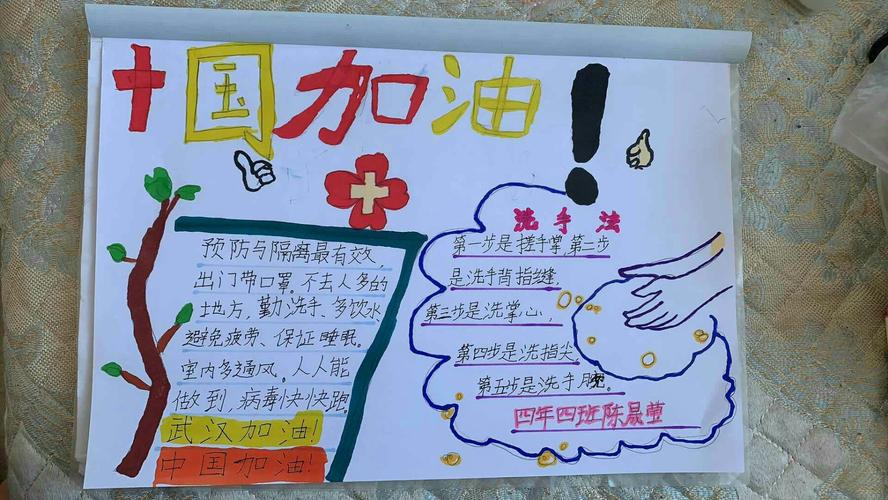 中国加油!
预防与隔离最有效,
出门带口罩。不去人多的
地方,勤洗手、多饮水
避免疲劳、保证睡眠。
室内多通风。人人能
做到,病毒快快跑。
武汉加油!
中国加油!
洗手法
第一步是搓手掌,第二步
是洗手背指缝,
第三步是洗掌心,
第四步是洗指尖,
第五步是洗手腕。
四年四班陈晟莹